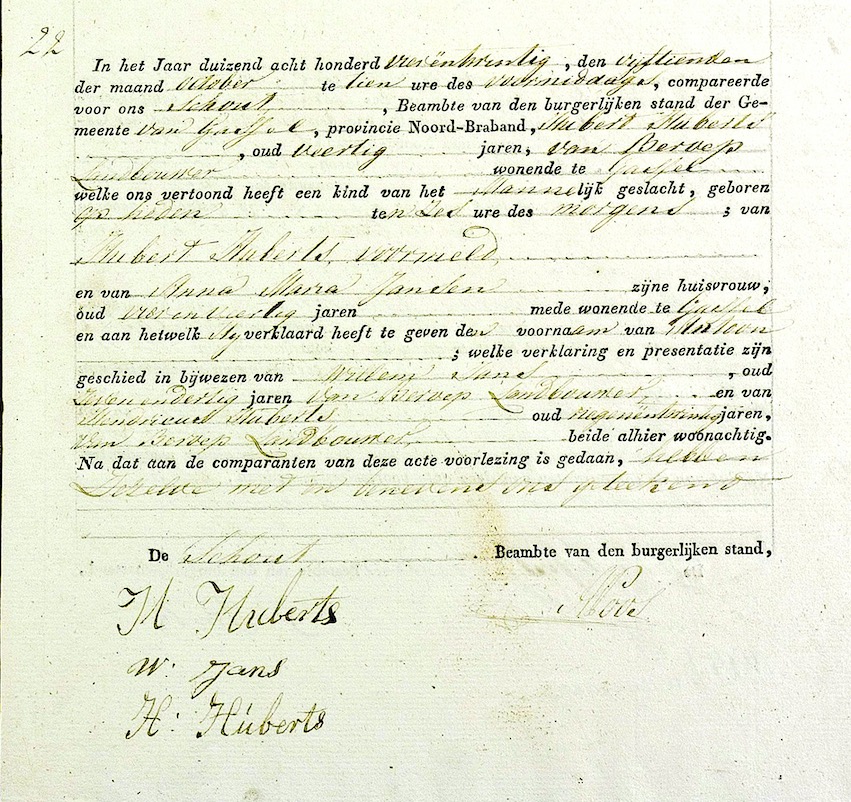 22
In het Jaar duizend acht honderd vierëntwintig , den vijftienden
der maand october te tien ure des voormiddags , compareerde
voor ons Schout , Beambte van den burgerlijken stand der Ge-
meente van Gassel , provincie Noord-Braband, Hubert Huberts
, oud veertig jaren, van Beroep
Landbouwer wonende te Gassel
welke ons vertoond heeft een kind van het Mannelijk geslacht, geboren
op heden ten Zes ure des morgens ; van
Hubert Huberts voormeld
en van Anna Maria Jansen zijne huisvrouw,
oud vier en veertig jaren mede wonende te Gassel
en aan hetwelk Hy verklaard heeft te geven den voornaam van Antoon
; welke verklaring en presentatie zijn
geschied in bijwezen van Willem Jans , oud
Zevenendertig jaren van Beroep Landbouwer en van
Hendricus Huberts oud negenentwintig jaren,
van Beroep Landbouwer beide alhier woonachtig.
Na dat aan de comparanten van deze acte voorlezing is gedaan, hebben
Dezelve met en benevens ons geteekend
De Schout Beambte van den burgerlijken stand,
H Huberts
W. Jans
H: Húberts